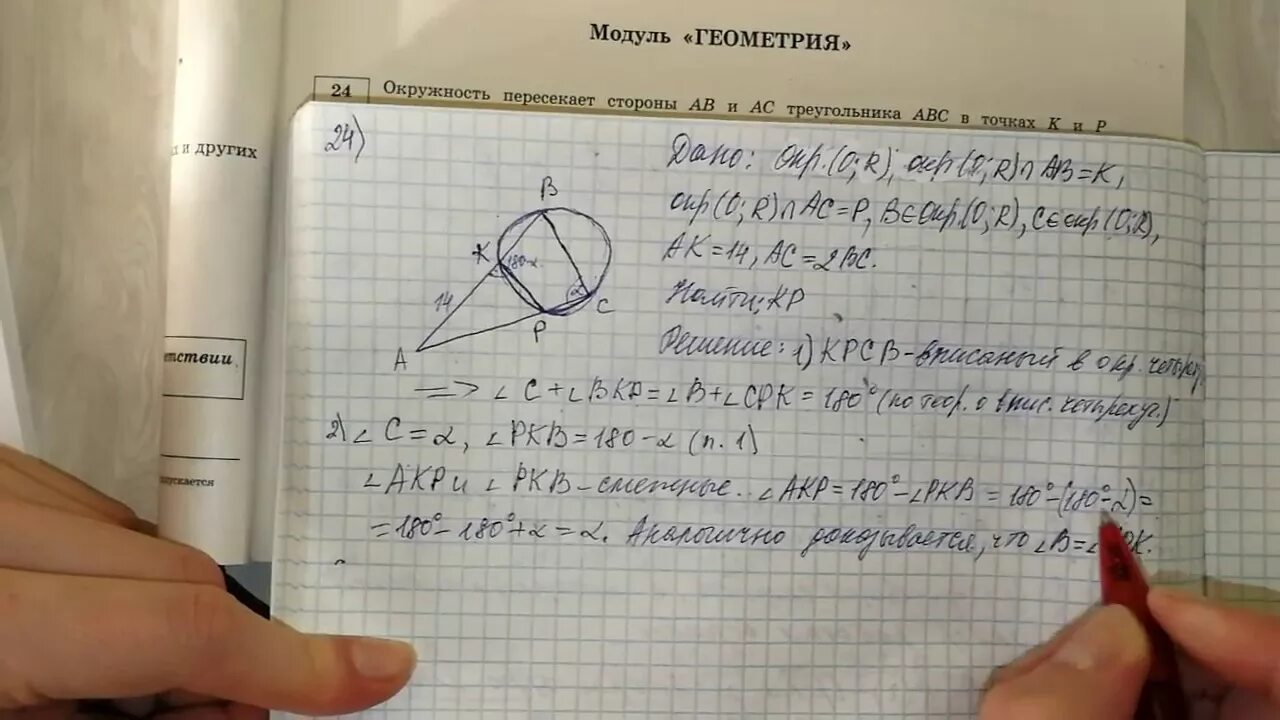 Модуль «ГЕОМЕТРИЯ»
24 Окружность пересекает стороны AB и AC треугольника ABC в точках K и P
и других
тствии
пускается
24)
B
K
180-α
14
α
C
P
A
Дано: Окр.(O;R), окр(O;R)∩AB=K,
окр(O;R)∩AC=P, B∈окр(O;R), C∈окр(O;R),
AK=14, AC=2BC.
Найти: KP
Решение: 1) KPCB-вписаный в окр. четыр
=> ∠C+∠BKP=∠B+∠CPK=180°(по теор. о впис. четырехуг.)
2) ∠C=α, ∠PKB=180-α (п. 1)
∠AKP и ∠PKB-смежные. ∠AKP=180°-∠PKB=180°-(180°-α)=
=180°-180°+α=α. Аналогично доказывается, что ∠B=∠